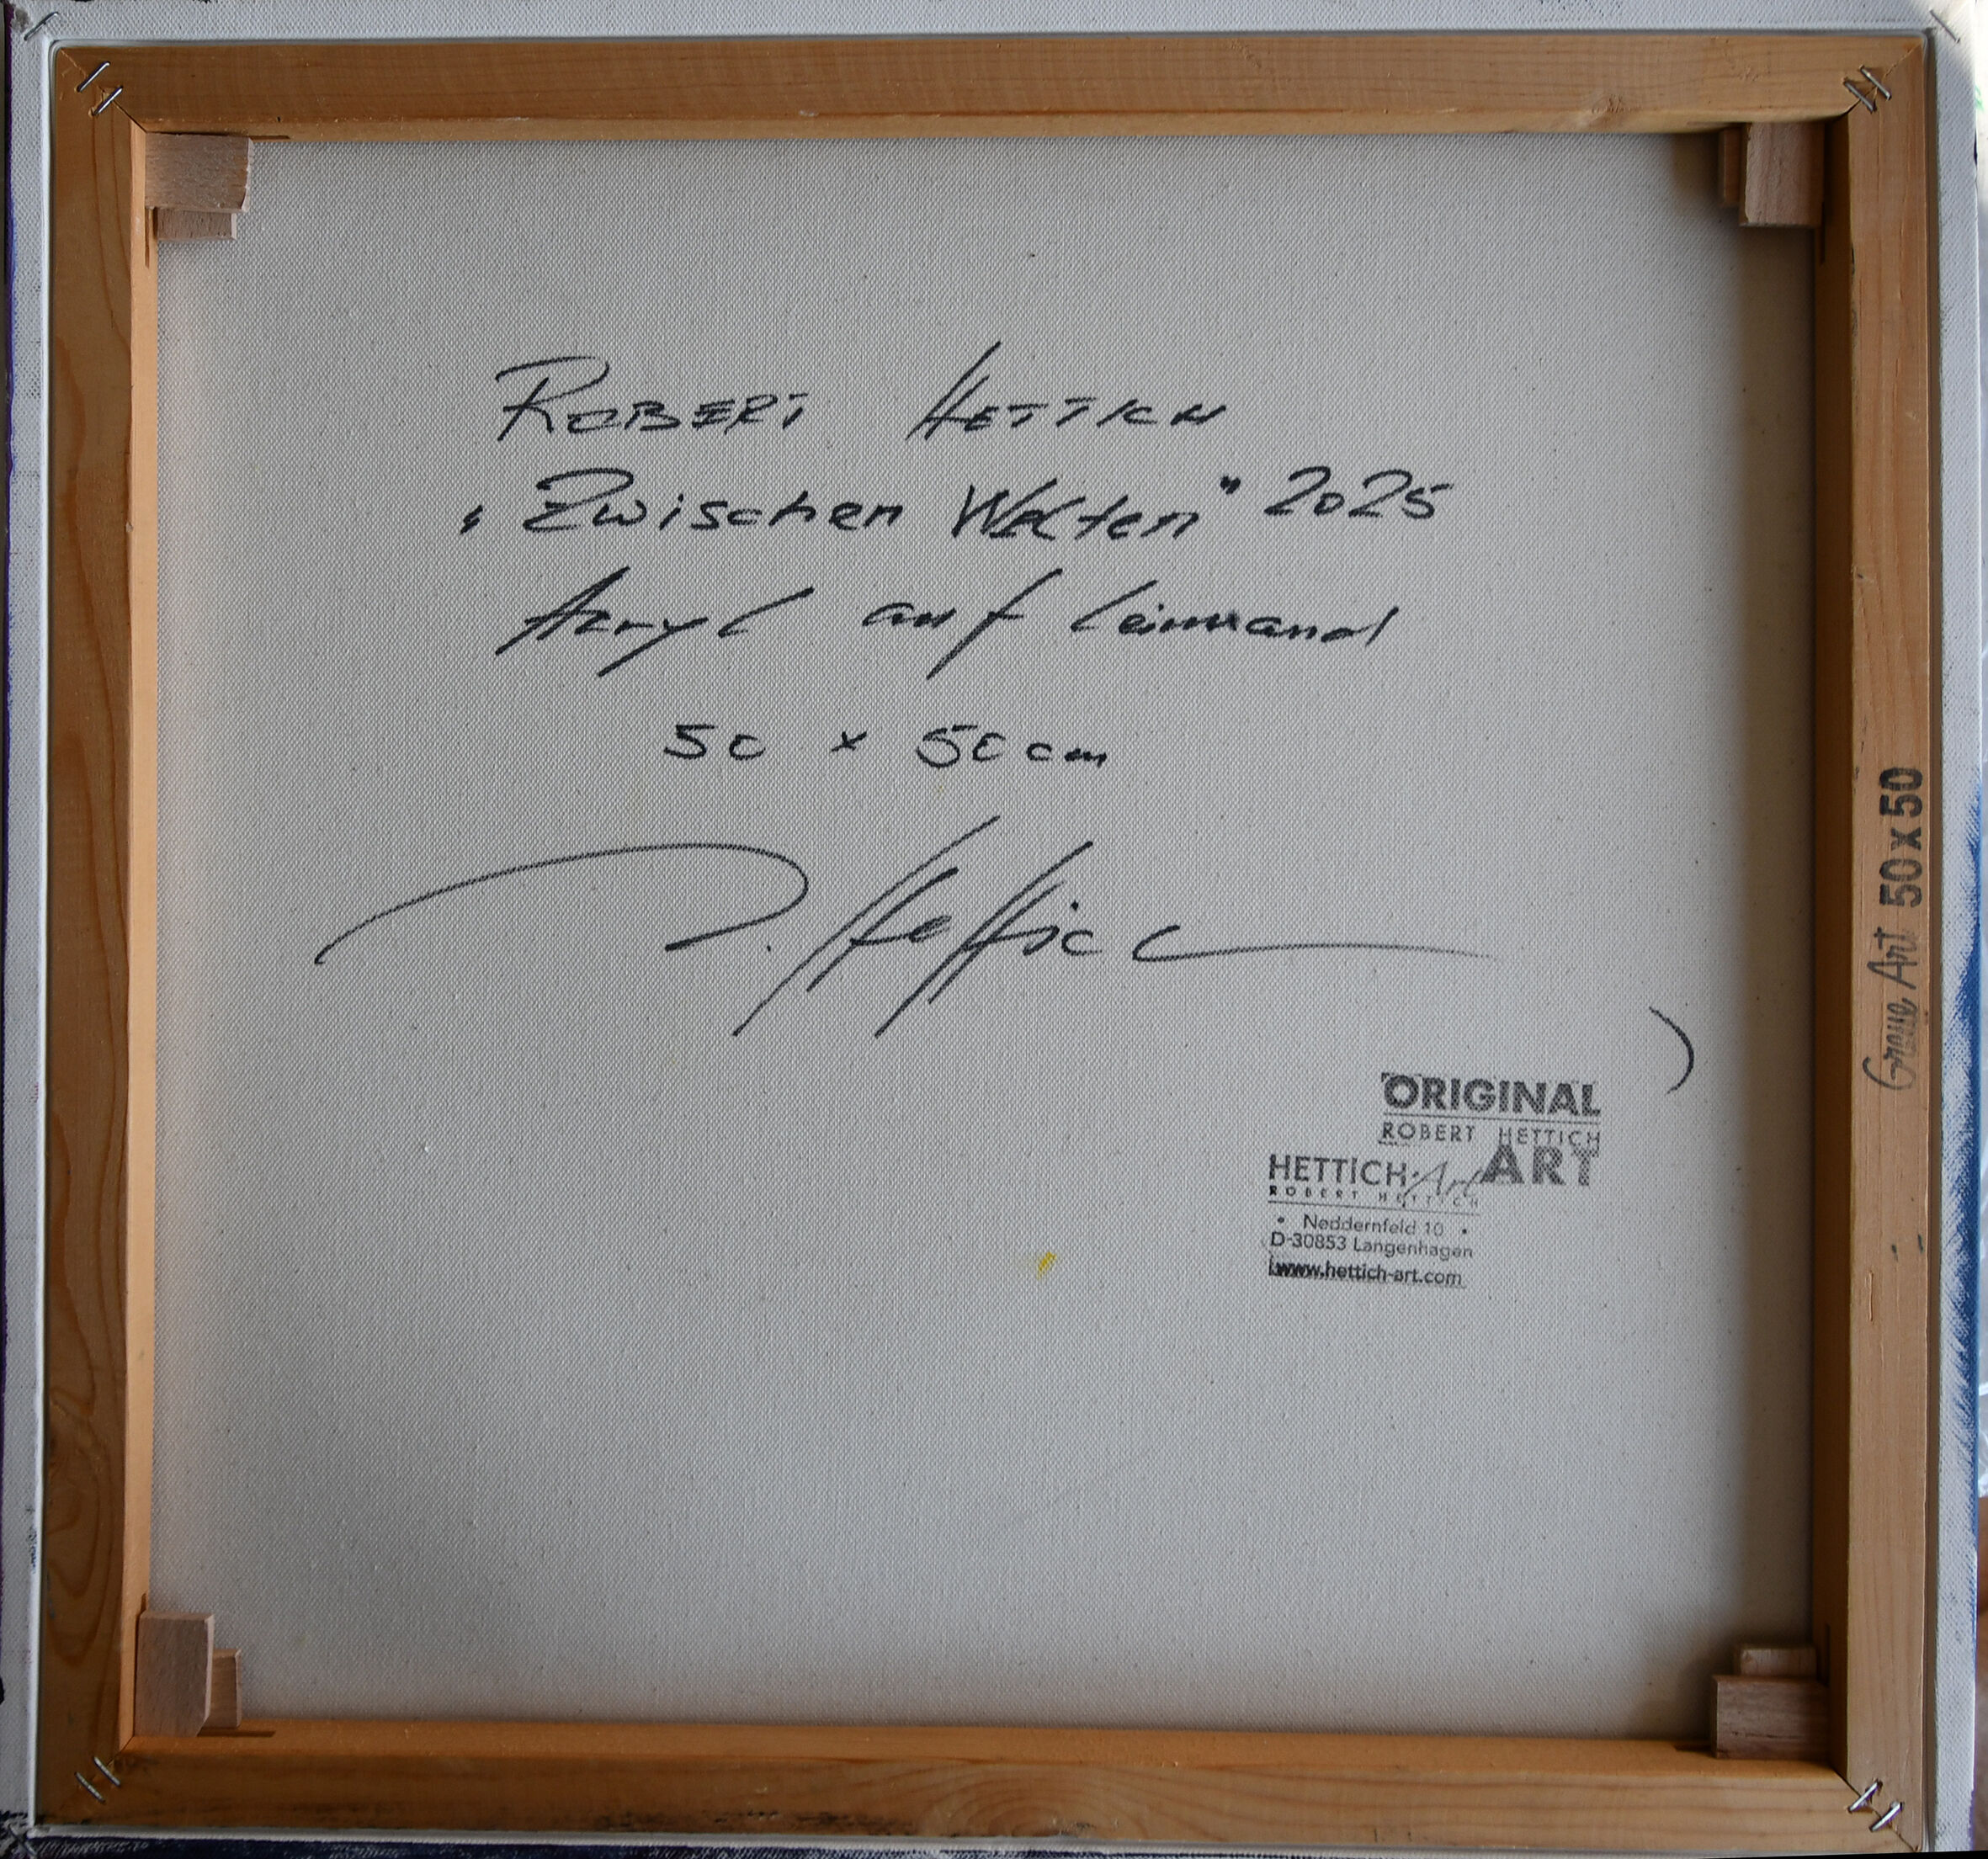 ROBERT HETTICH
„Zwischen Welten" 2025
Acryl auf Leinwand
50 x 50 cm
R. Hettich
ORIGINAL
ROBERT HETTICH
ART
HETTICH·Art
ROBERT HETTICH
• Neddernfeld 10 •
D-30853 Langenhagen
www.hettich-art.com
Art 50x50